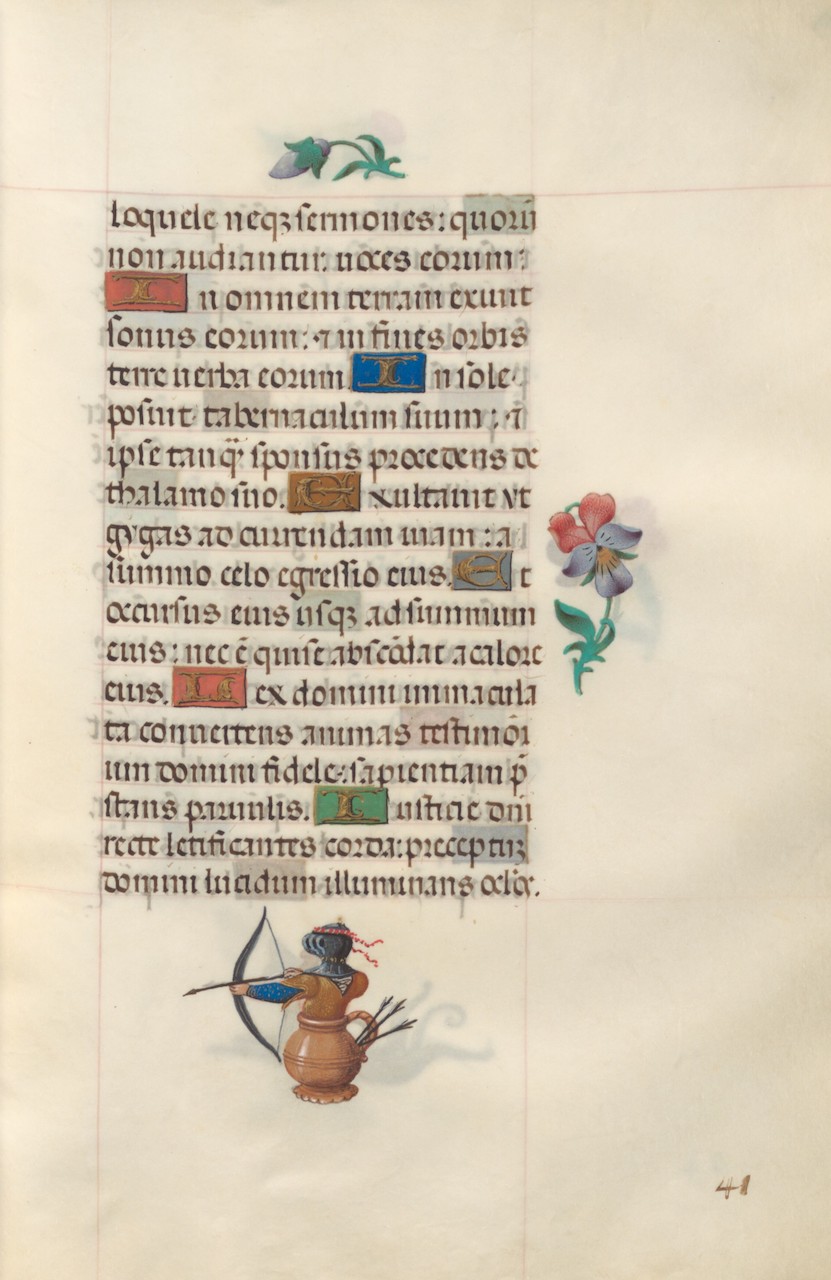 loquele neqꝫ sermones: quorū
non audiantur uoces eorum:
In omnem terram exiuit
sonus eorum: ⁊ in fines orbis
terre uerba eorum. In sole
posuit tabernaculum suum: ⁊
ipse tanq̄ sponsus procedens de
thalamo suo. Exultauit vt
gygas ad currendam uiam: a
summo celo egressio eius. Et
occursus eius usqꝫ ad summum
eius: nec ē qui se abscōdat a calore
eius. Lex domini immacula
ta conuertens animas testimōi
um domini fidele: sapientiam p̄
stans paruulis. Iusticie dn̄i
recte letificantes corda: preceptuꝫ
domini lucidum illuminans oclōs.
41